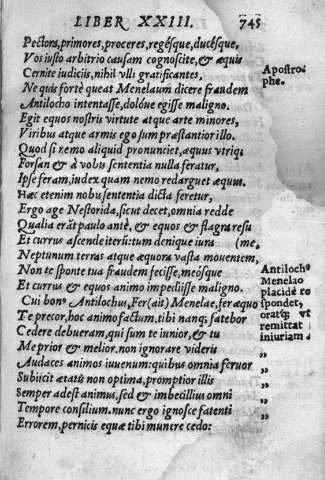 LIBER XXIII. 745
Pectons, primores, proceres, regésque, ducésque,
Vos iusto arbitrio causam cognoscite, & æquis
Cernite iudiciis, nihil vlli gratificantes,
Apostro
phe.
Ne quis fortè queat Menelaum dicere fraudem
Antilocho intentasse, dolóue egisse maligno.
Egit equos nostris virtute atque arte minores,
Viribus atque armis ego sum præstantior illo.
Quod si remo aliquid pronunciet, æquus vtriq;
Forsan & à vobis sententia nulla feratur,
Ipse feram, iudex quam nemo redarguet æquus.
Hæc etenim nobis sententia dicta feretur,
Ergo age Nestorida, sicut decet, omnia redde
Qualia erāt paulo antè, & equos & flagra resu
Et currus ascende iterū: tum denique iura (me,
Neptunum terras atque æquora vasta mouentem,
Non te sponte tua fraudem fecisse, meósque
Et currus & equos animo impediisse maligno.
Antiloch⁹
Menelao
placidè re
spondet,
oratq; vt
remittat
iniuriam
Cui bon⁹ Antilochus, Fer(ait) Menelae, fer æquo
Te precor, hoc animo factum, tibi nanq; fatebor
Cedere debueram, qui sum te iunior, & tu
Me prior & melior. non ignorare videris
Audaces animos iuuenum: quibus omnia feruor
Subiicit ætatis non optima, promptior illis
Semper adest animus, sed & imbecillius omni
Tempore consilium. nunc ergo ignosce fatenti
Errorem, pernicis equæ tibi munere cedo: